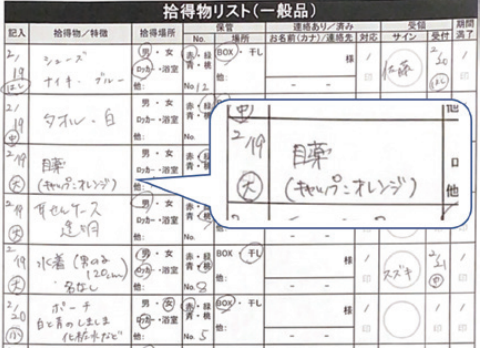 拾得物リスト(一般品)
記入 拾得物/特徴 拾得場所 保管 連絡あり/済み 受領 期間満了
No. 場所 お名前(カナ)/連絡先 対応 サイン 受付
2/19 シューズ 男・女 赤・緑 BOX・干し 様 佐藤 2/20
ナイキ・ブルー ロッカー・浴室 青・桃
他: No 12 他:
2/19 タオル・白 男・女
ロッカー・浴室
他:
2/19 目薬 男・女
(キャップ:オレンジ) ロッカー・浴室
大 他:
2/19 耳せんケース 男・女
透明 ロッカー・浴室
大 他:
2/19 水着(男の子 男・女 赤・緑 BOX・干し 様 スズキ 2/21
120cm) ロッカー・浴室 青・桃
大 名なし 他: No 8 他:
2/20 ポーチ 男・女 赤・緑 BOX・干し 様
白と青のしましま ロッカー・浴室 青・桃
化粧水など 他: No 5 他:
2/19 目薬
大 (キャップ:オレンジ)
他